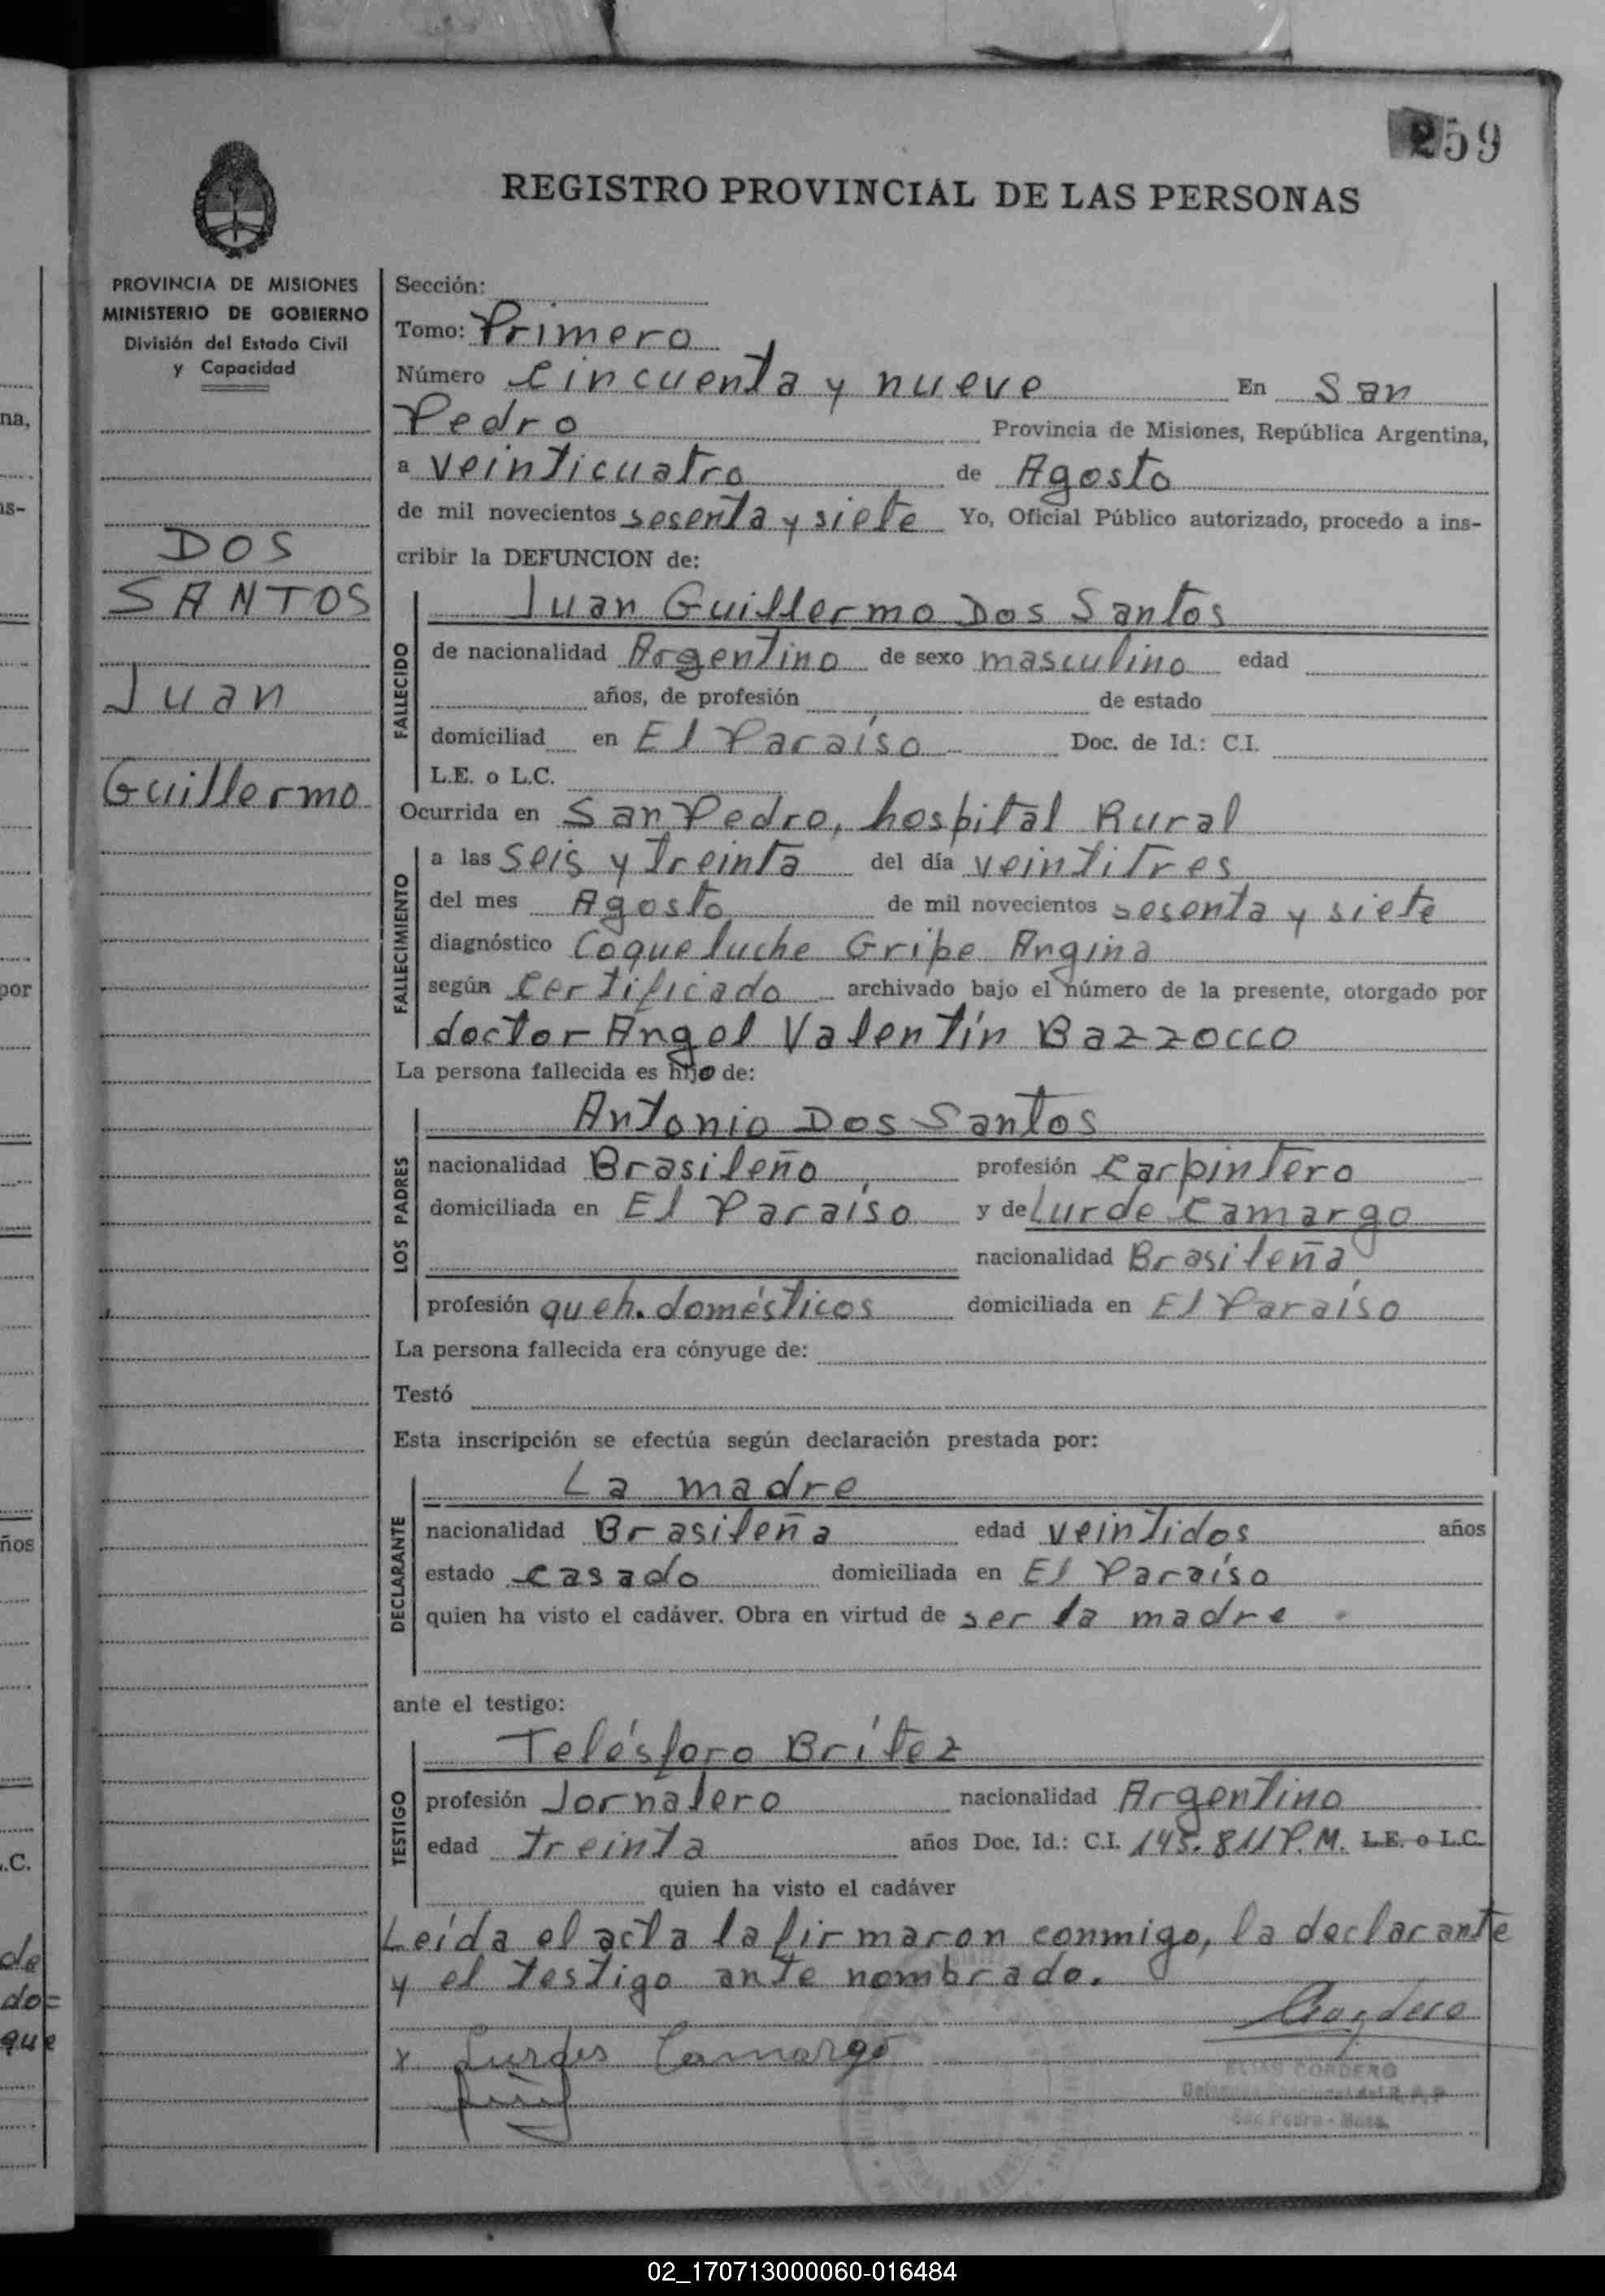 259
REGISTRO PROVINCIAL DE LAS PERSONAS
PROVINCIA DE MISIONES
MINISTERIO DE GOBIERNO
División del Estado Civil
y Capacidad
DOS
SANTOS
Juan
Guillermo
Sección:
Tomo: Primero
Número Cincuenta y nueve En San
Pedro Provincia de Misiones, República Argentina,
a veinticuatro de Agosto
de mil novecientos sesenta y siete Yo, Oficial Público autorizado, procedo a ins-
cribir la DEFUNCION de:
FALLECIDO
Juan Guillermo Dos Santos
de nacionalidad Argentino de sexo masculino edad
años, de profesión de estado
domiciliad en El Paraíso Doc. de Id.: C.I.
L.E. o L.C.
Ocurrida en San Pedro, hospital Rural
FALLECIMIENTO
a las seis y treinta del día veintitres
del mes Agosto de mil novecientos sesenta y siete
diagnóstico Coqueluche Gripe Angina
según Certificado archivado bajo el número de la presente, otorgado por
doctor Angel Valentín Bazzocco
La persona fallecida es hijo de:
LOS PADRES
Antonio Dos Santos
nacionalidad Brasileño profesión Carpintero
domiciliada en El Paraíso y de Lurde Camargo
nacionalidad Brasileña
profesión queh. domésticos domiciliada en El Paraíso
La persona fallecida era cónyuge de:
Testó
Esta inscripción se efectúa según declaración prestada por:
DECLARANTE
La madre
nacionalidad Brasileña edad veintidos años
estado casado domiciliada en El Paraíso
quien ha visto el cadáver. Obra en virtud de ser la madre
ante el testigo:
TESTIGO
Telésforo Brítez
profesión Jornalero nacionalidad Argentino
edad treinta años Doc. Id.: C.I. 145.811 P.M. L.E. o L.C.
quien ha visto el cadáver
Leída el acta la firmaron conmigo, la declarante
y el testigo ante nombrado.
Cordero
x Lurdes Camargo
ELIAS CORDERO
San Pedro - Mnes.
na,
as-
por
ños
.C.
de
do=
que
02_170713000060-016484